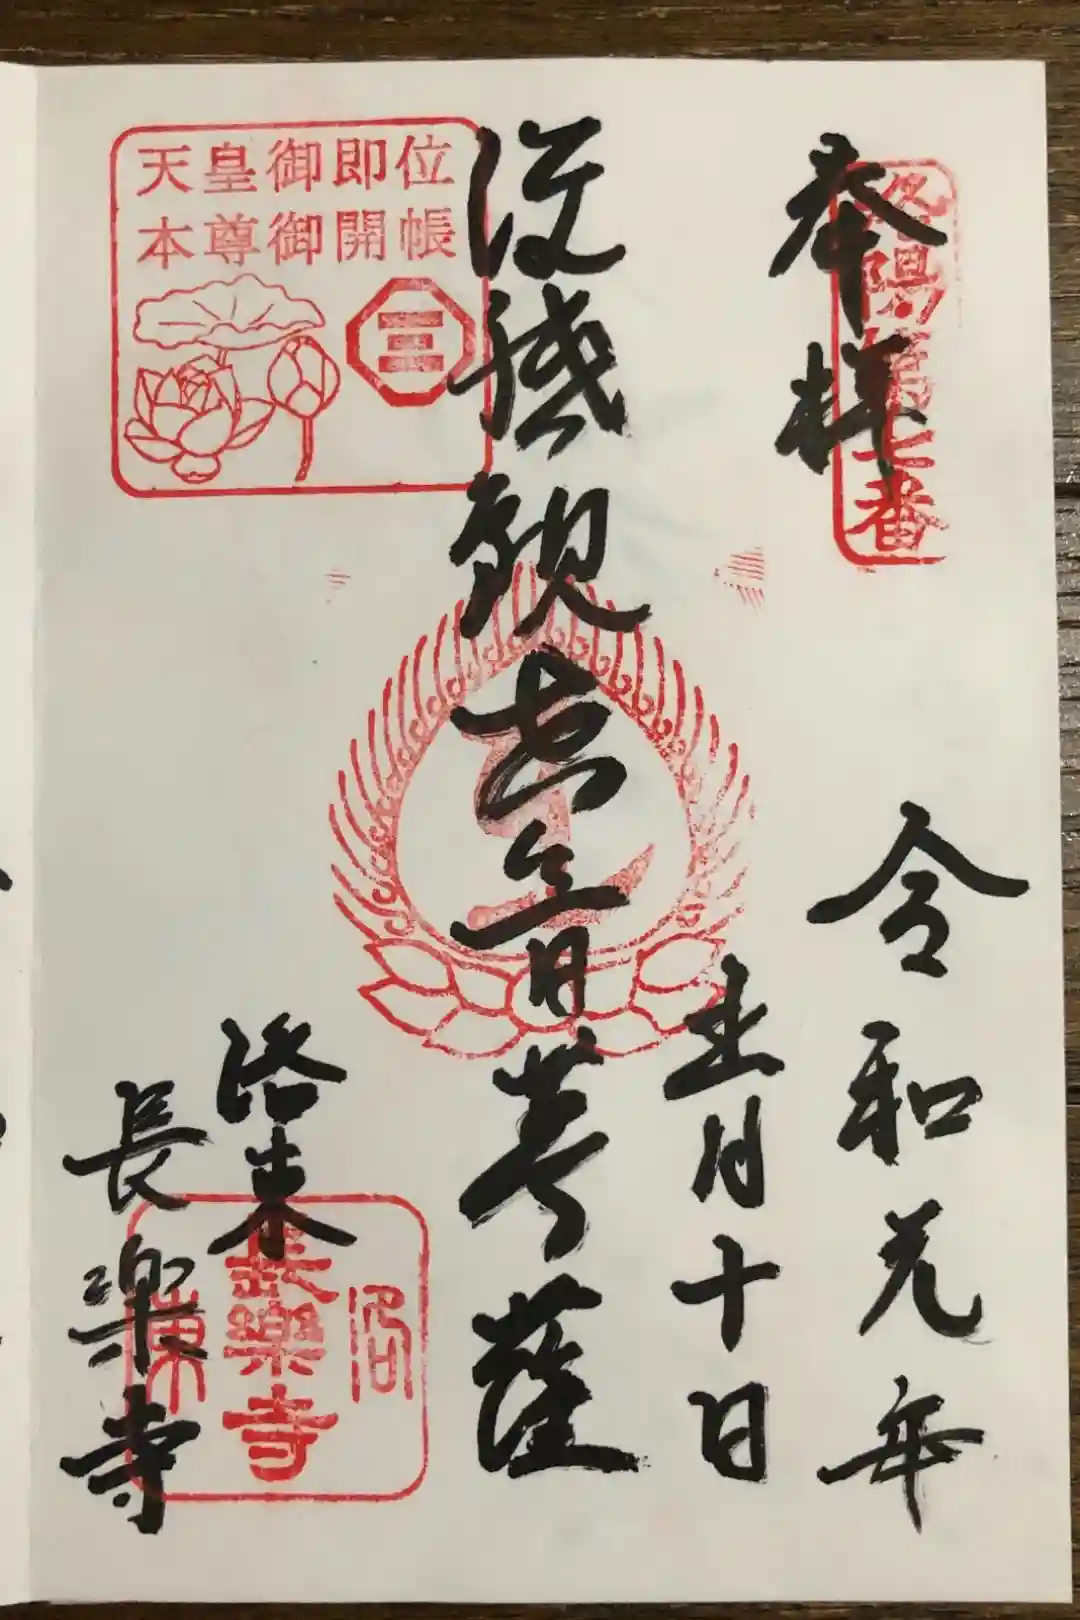 奉拝
洛陽第七番
令和元年
五月十日
准胝観世音菩薩
天皇御即位
本尊御開帳
洛東
長楽寺
洛
長樂寺
東